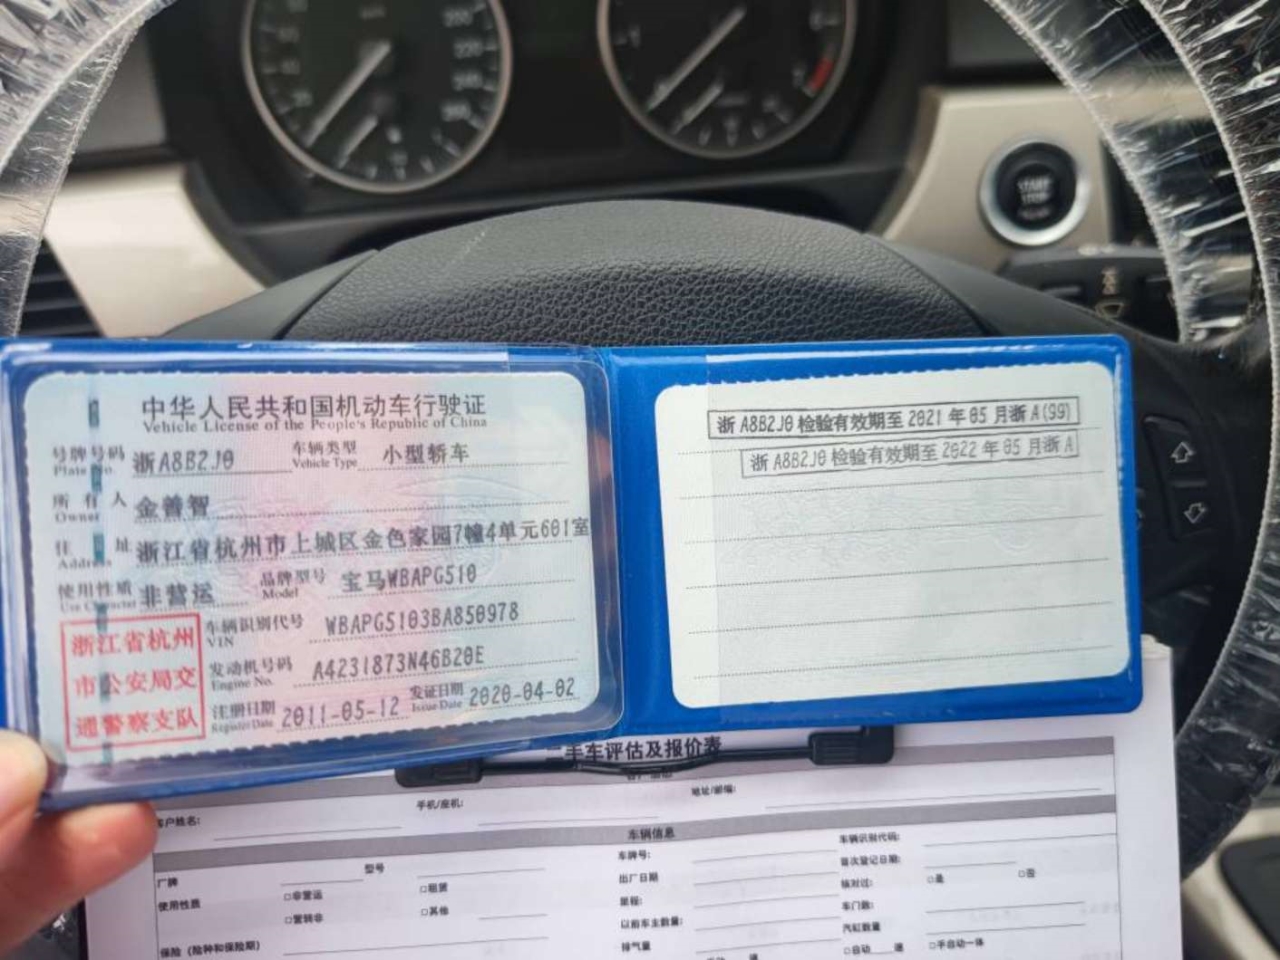 START
STOP
中华人民共和国机动车行驶证
Vehicle License of the People's Republic of China
号牌号码 浙A8B2J0 车辆类型 小型轿车
Plate No. Vehicle Type
所有人 金善智
Owner
住址 浙江省杭州市上城区金色家园7幢4单元601室
Address
使用性质 非营运 品牌型号 宝马WBAPG510
Use Character Model
浙江省杭州
市公安局交
通警察支队
车辆识别代号 WBAPG5103BA850978
VIN
发动机号码 A4231873N46B20E
Engine No.
注册日期 2011-05-12 发证日期 2020-04-02
Register Date Issue Date
浙A8B2J0检验有效期至2021年05月浙A(99)
浙A8B2J0检验有效期至2022年05月浙A
二手车评估及报价表
客户姓名: 手机/座机: 地址/邮编:
车辆信息
厂牌 型号 车牌号: 车辆识别代码:
出厂日期 首次登记日期:
使用性质 □非营运 □租赁 里程: 核对过: □是 □否
□营转非 □其他 以前车主数量: 车门数:
保险(险种和保险期) 排气量 汽缸数量
□自动 速 □手自动一体